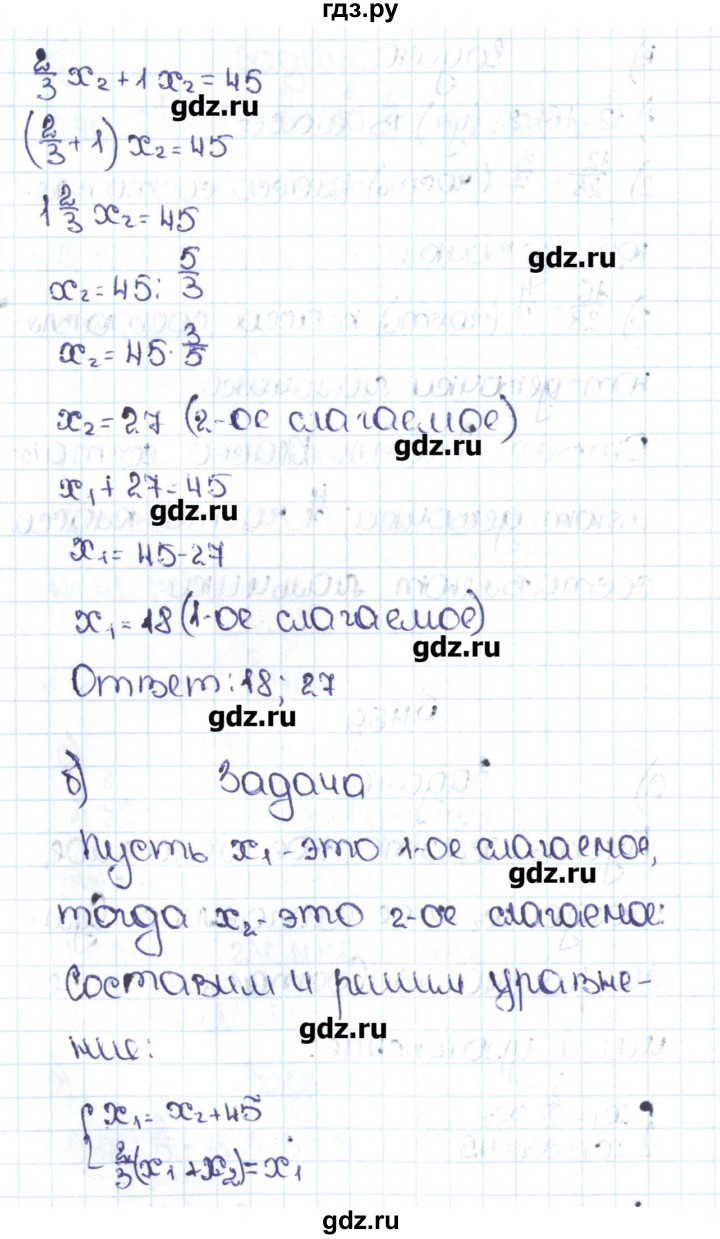 гдз.ру
2/3 x₂ + 1 x₂ = 45
gdz.ru
(2/3 + 1) x₂ = 45
1 2/3 x₂ = 45
gdz.ru
x₂ = 45 : 5/3
x₂ = 45 · 3/5
x₂ = 27 (2-ое слагаемое)
gdz.ru
x₁ + 27 = 45
gdz.ru
x₁ = 45 - 27
x₁ = 18 (1-ое слагаемое)
gdz.ru
Ответ: 18; 27
gdz.ru
б) Задача
Пусть x₁ - это 1-ое слагаемое,
gdz.ru
тогда x₂ - это 2-ое слагаемое.
Составим и решим уравне-
gdz.ru
ние:
{ x₁ = x₂ + 45
2/3 (x₁ + x₂) = x₁
gdz.ru